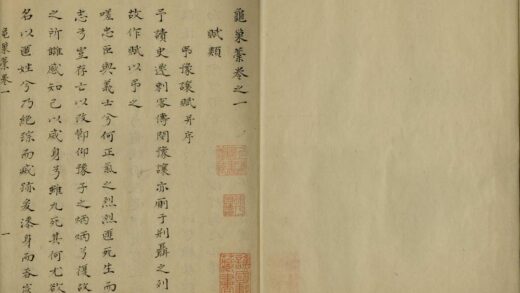 龜巢藁卷之一
賦類
弔豫讓賦并序
予讀史遷刺客傳閔豫讓亦廁于荆聶之列
故作賦以弔之
嗟忠臣與義士兮何正氣之烈烈匪死生而
志兮豈存亡以改節仰豫子之炳炳兮獲故
之所讎感知己以烕身兮雖九死其何尤欲
名以匿姓兮乃絕踪而滅跡爰漆身而吞炭
龜巢藁卷一
一